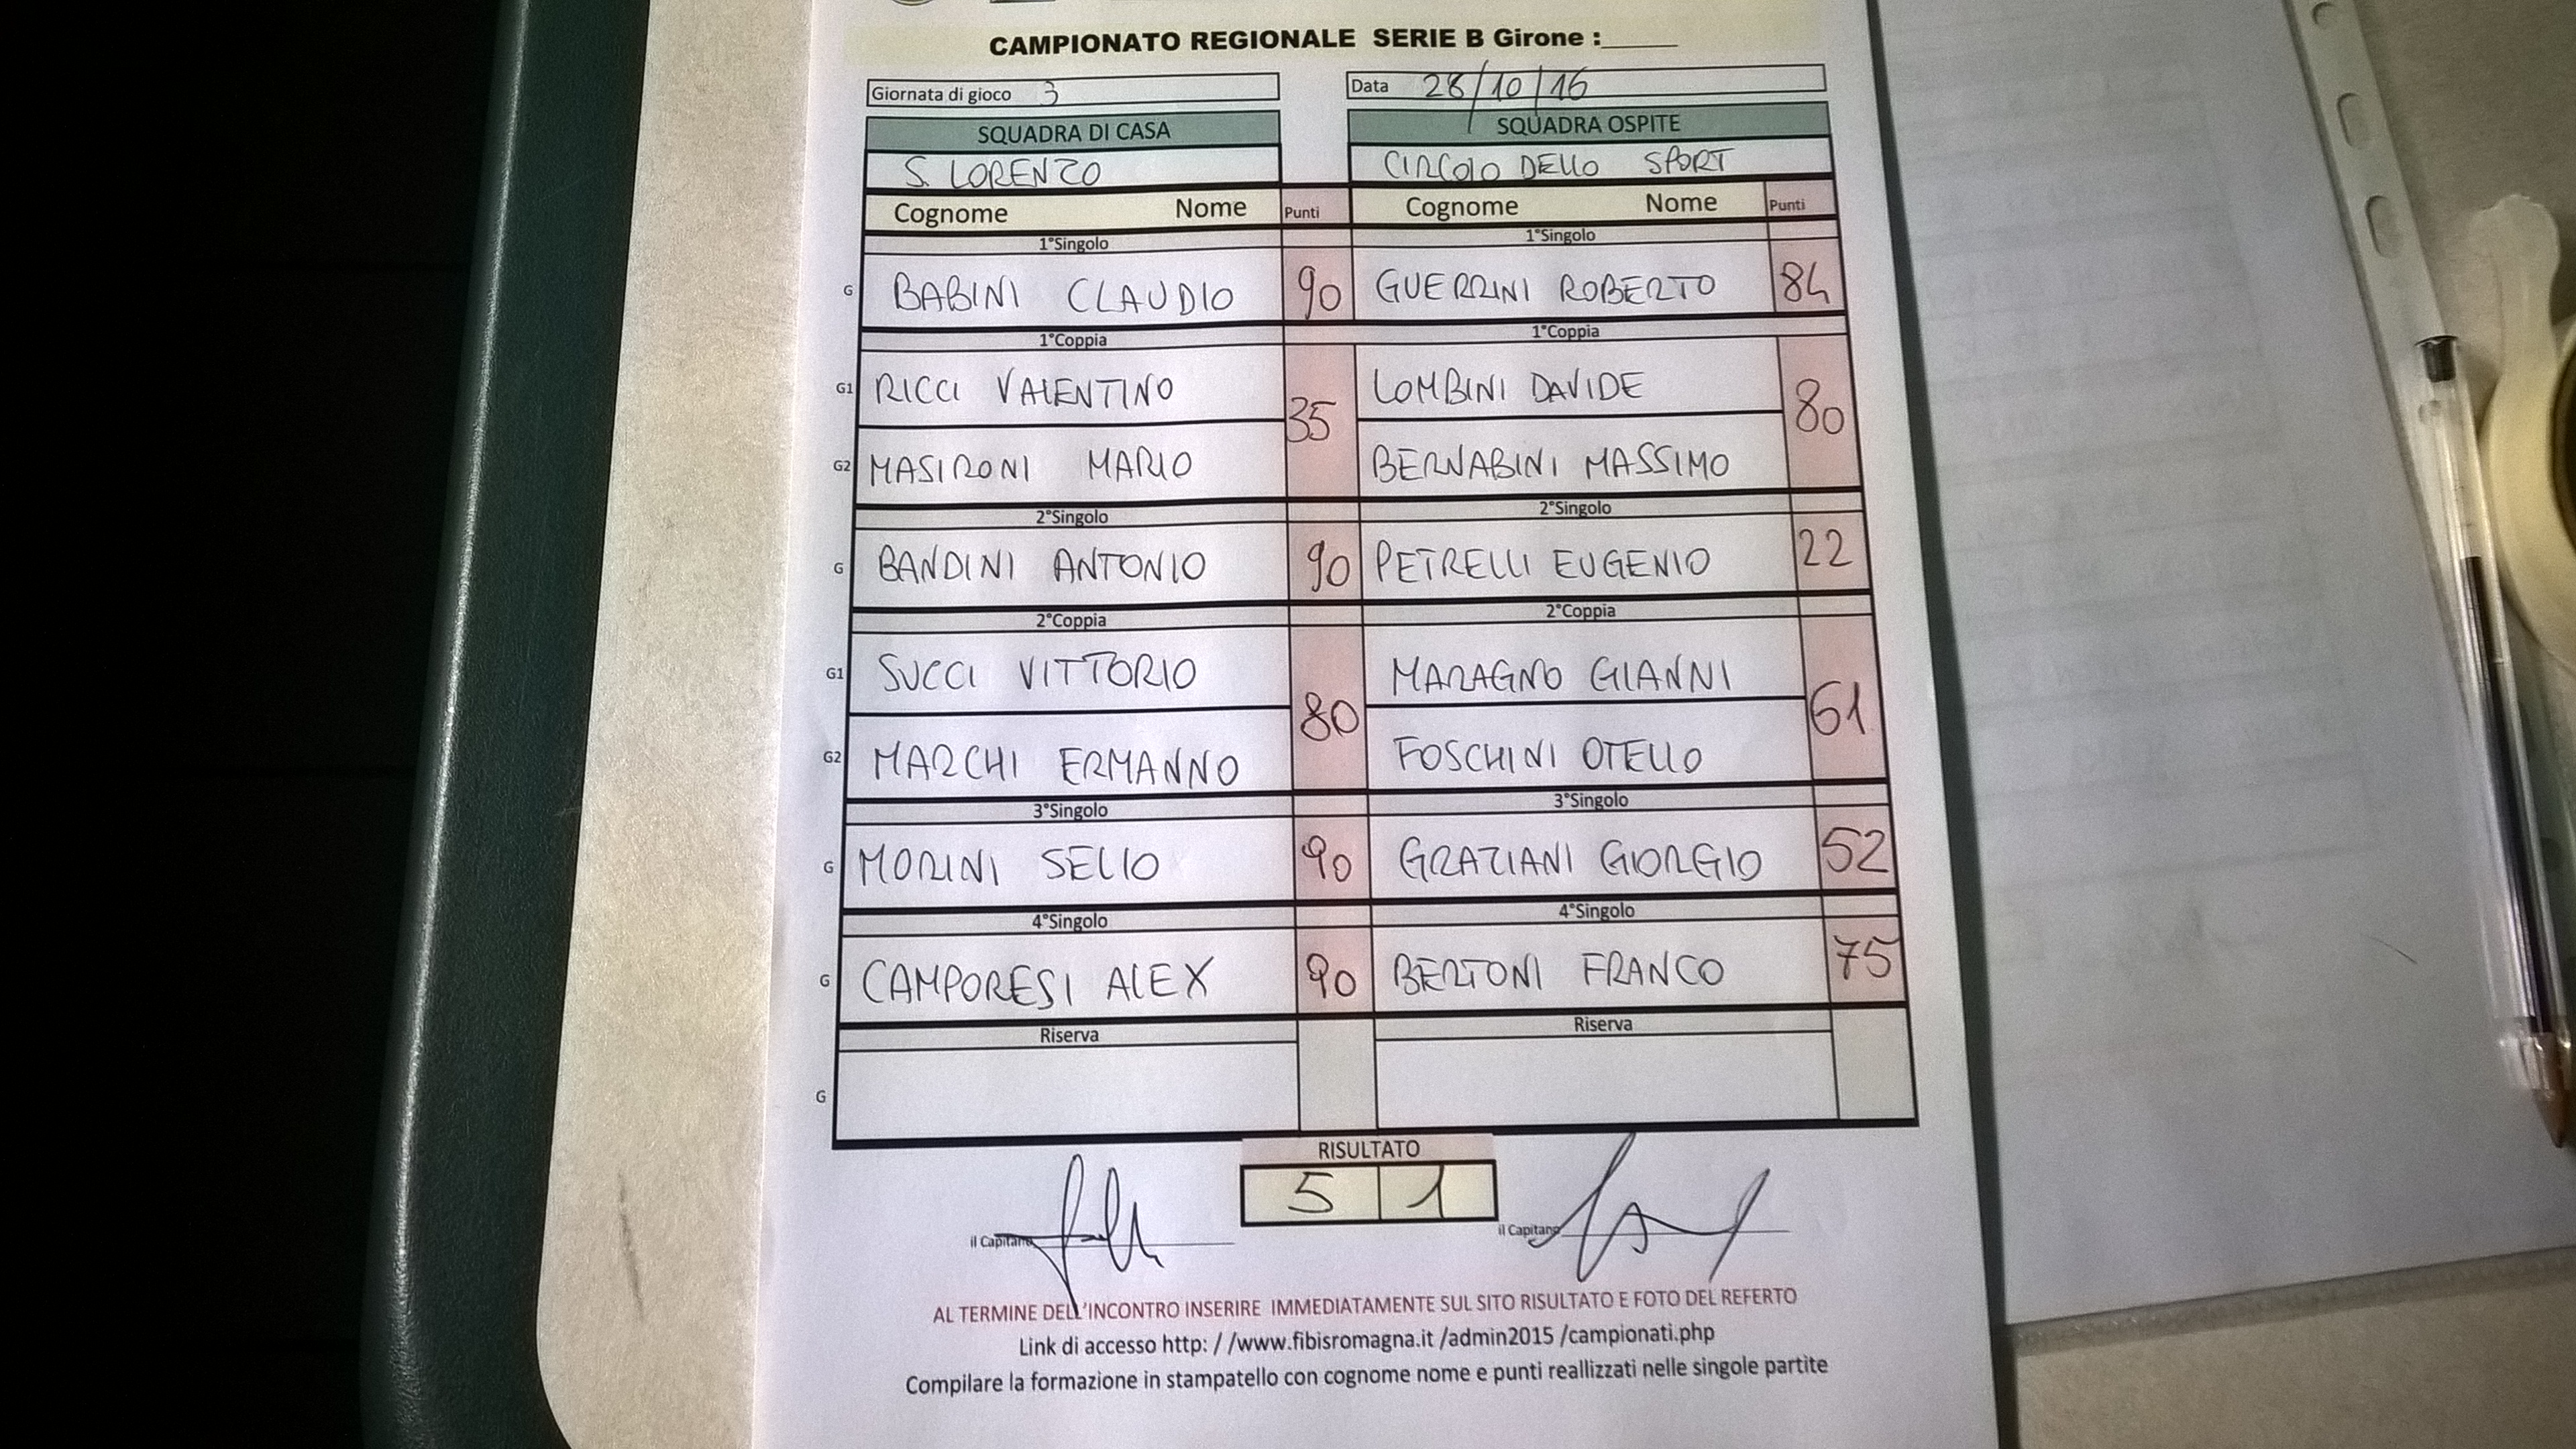 CAMPIONATO REGIONALE SERIE B Girone :_____
Giornata di gioco 3 Data 28/10/16
SQUADRA DI CASA SQUADRA OSPITE
S. LORENZO CIRCOLO DELLO SPORT
Cognome Nome Punti Cognome Nome Punti
1°Singolo 1°Singolo
G BABINI CLAUDIO 90 GUERRINI ROBERTO 84
1°Coppia 1°Coppia
G1 RICCI VALENTINO LOMBINI DAVIDE
35 80
G2 MASIRONI MARIO BERNABINI MASSIMO
2°Singolo 2°Singolo
G BANDINI ANTONIO 90 PETRELLI EUGENIO 22
2°Coppia 2°Coppia
G1 SUCCI VITTORIO MARAGNO GIANNI
80 61
G2 MARCHI ERMANNO FOSCHINI OTELLO
3°Singolo 3°Singolo
G MORINI SELIO 90 GRAZIANI GIORGIO 52
4°Singolo 4°Singolo
G CAMPORESI ALEX 90 BERTONI FRANCO 75
Riserva Riserva
G
RISULTATO
5 1
il Capitano il Capitano
AL TERMINE DELL'INCONTRO INSERIRE IMMEDIATAMENTE SUL SITO RISULTATO E FOTO DEL REFERTO
Link di accesso http: / /www.fibisromagna.it /admin2015 /campionati.php
Compilare la formazione in stampatello con cognome nome e punti reallizzati nelle singole partite